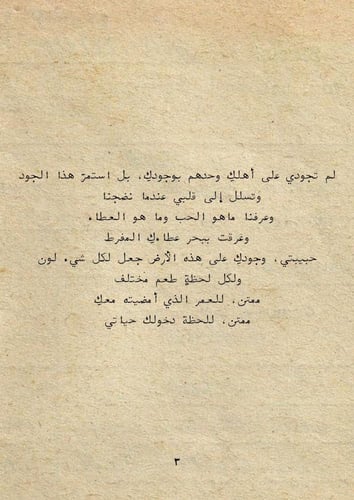 لم تجودي على أهلكِ وحدهم بوجودكِ، بل استمرّ هذا الجود
وتسلل إلى قلبي عندما نضجنا
وعرفنا ماهو الحب وما هو العطاء
وغرقت ببحر عطاءكِ المفرط
حبيبتي، وجودكِ على هذه الأرض جعل لكل شيء لون
ولكل لحظةٍ طعم مختلف
ممتن، للعمر الذي أمضيته معكِ
ممتن، للحظة دخولك حياتي
٣